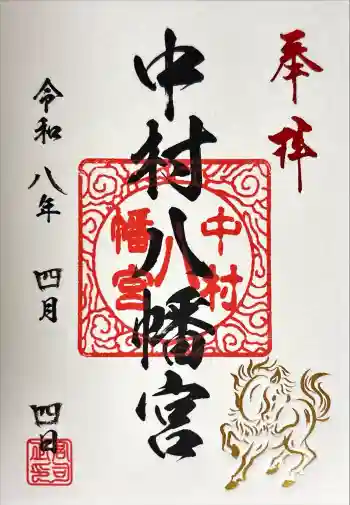 奉拝
中村八幡宮
中村
八
幡宮
令和八年 四月 四日